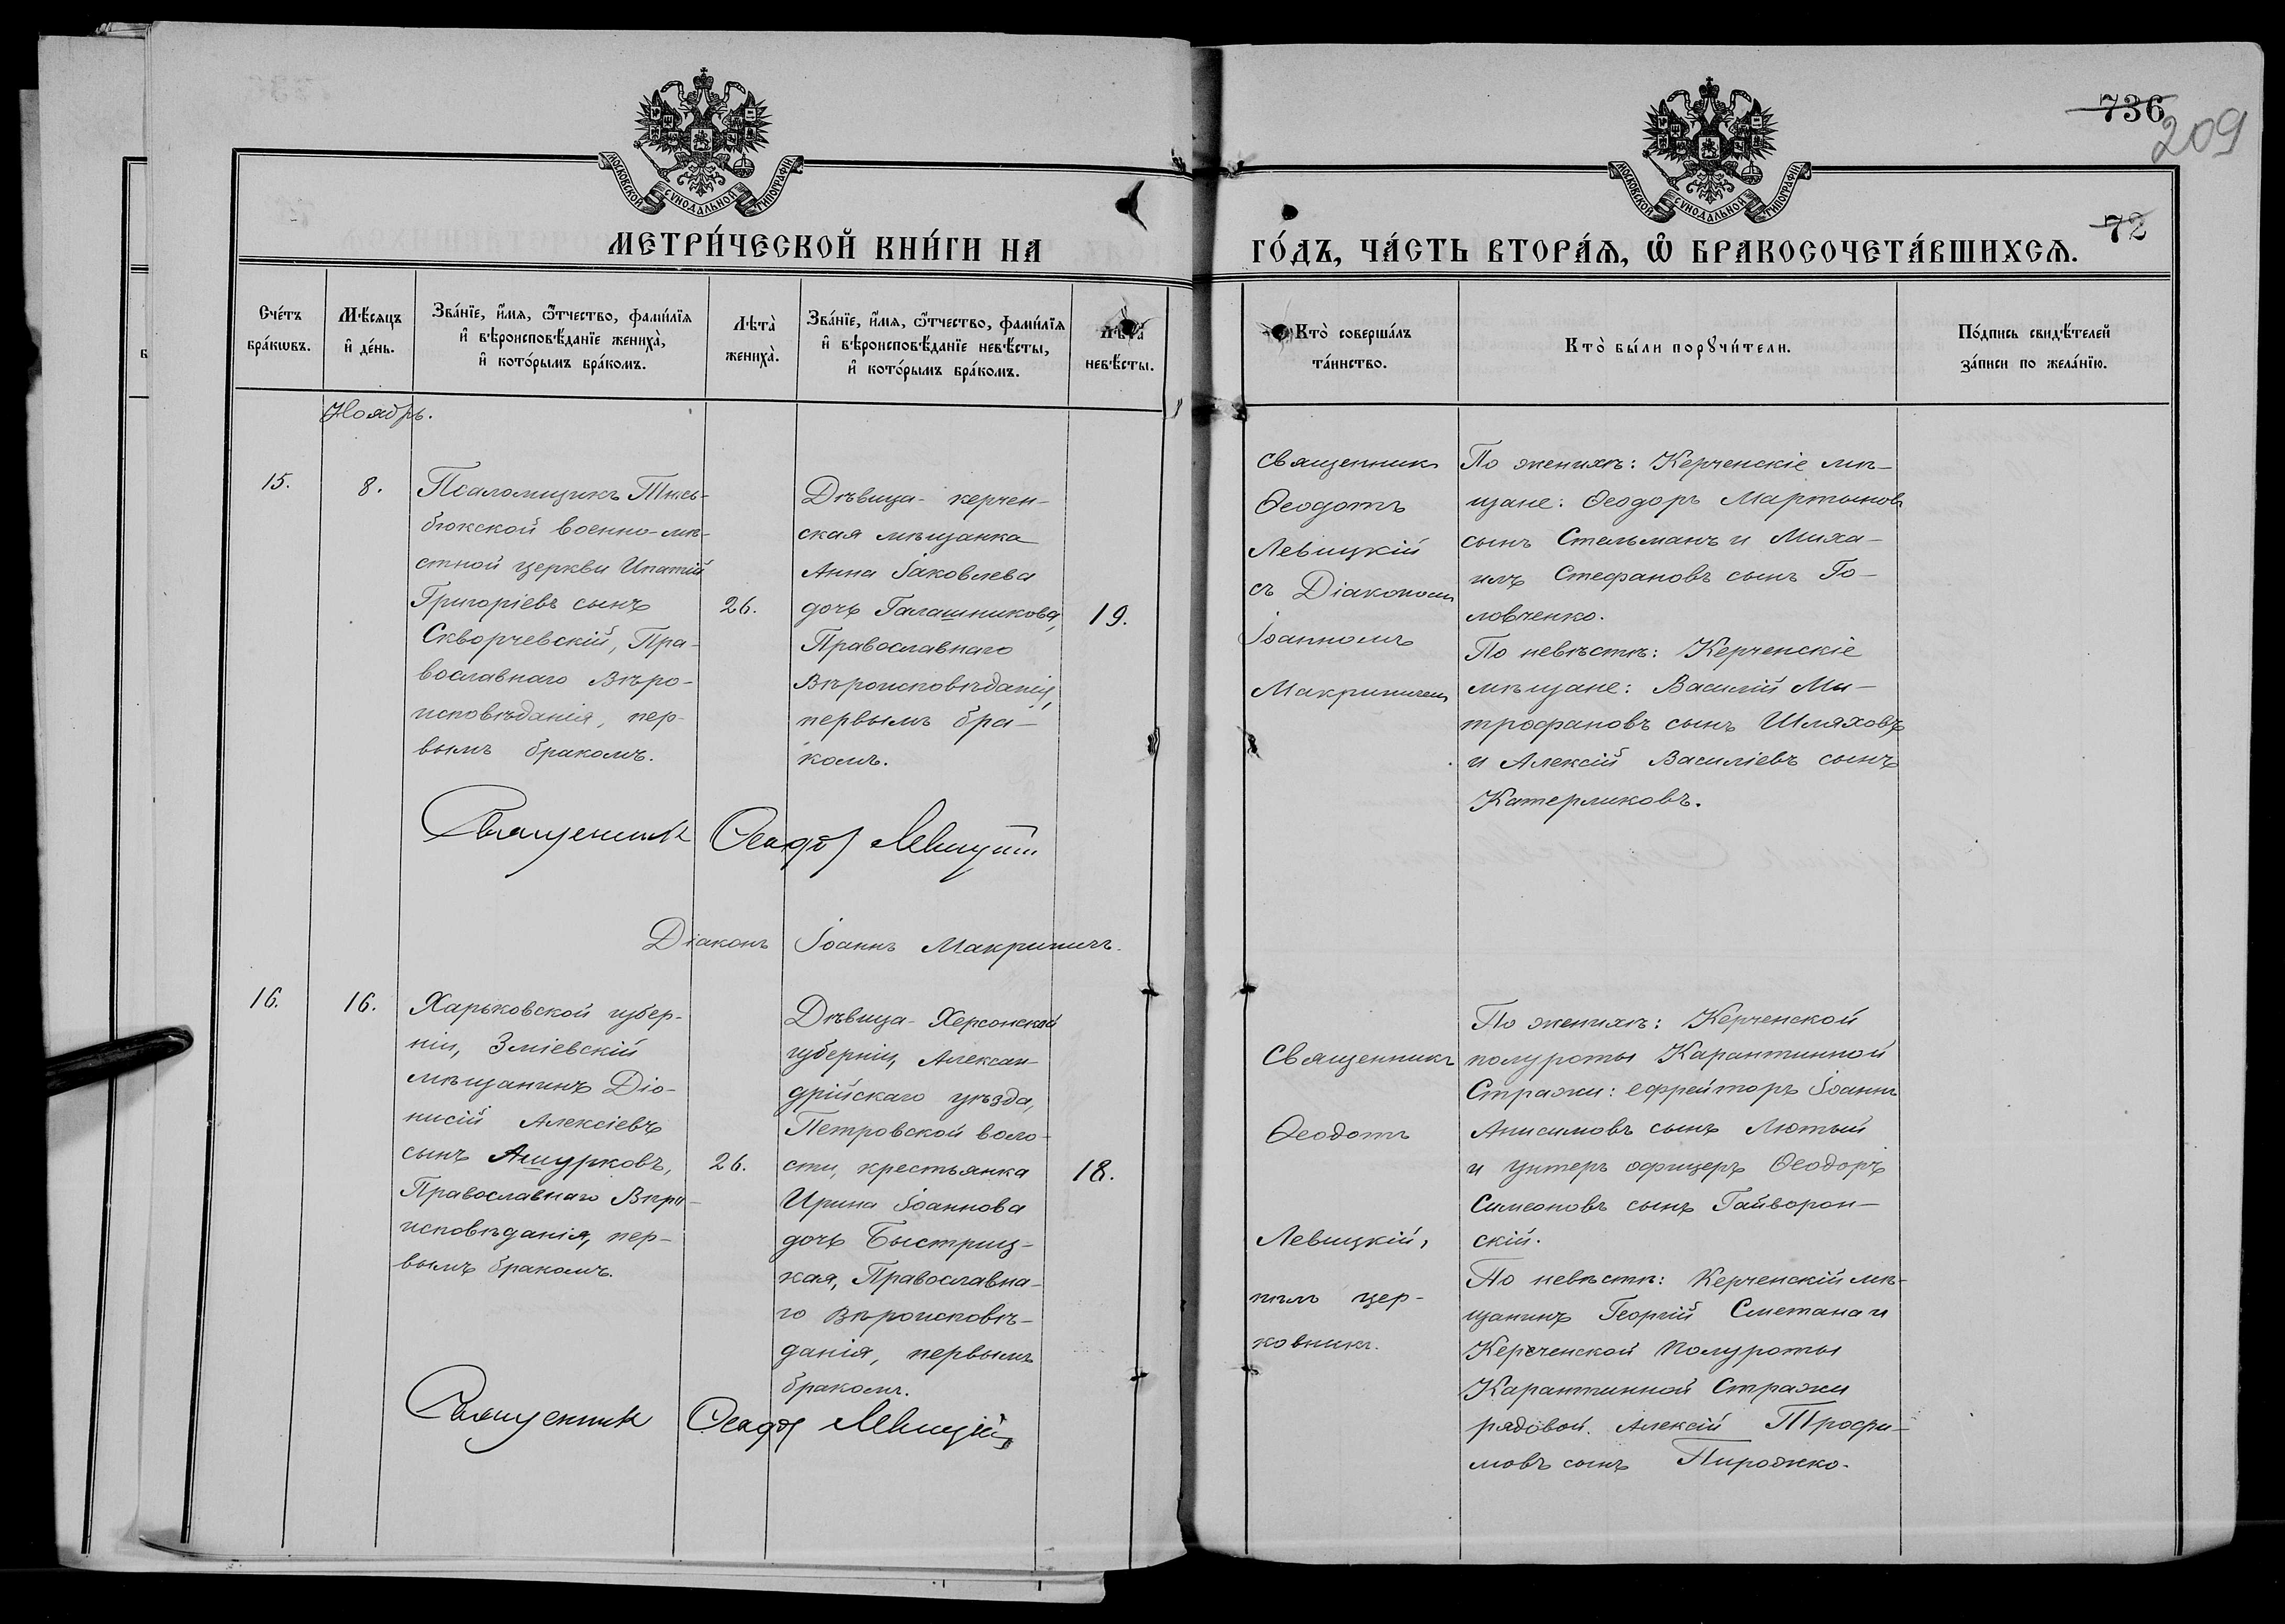 736
209
72
МОСКОВСКОЙ СѴНОДАЛЬНОЙ ТИПОГРАФІИ
МОСКОВСКОЙ СѴНОДАЛЬНОЙ ТИПОГРАФІИ
МЕТРИ́ЧЕСКОЙ КНИ́ГИ НА
ГО́ДЪ, ЧА́СТЬ ВТОРА́Ѧ, Ѽ БРАКОСОЧЕТА́ВШИХСѦ.
Сче́тъ
бра́кѡвъ.
Мѣ́сяцъ
и҆ де́нь.
Зва́нїе, и҆́мѧ, ѻ҆́тчество, фами́лїѧ
и҆ вѣроисповѣ́данїе жениха̀,
и҆ кото́рымъ бра́комъ.
Лѣта̀
жениха̀.
Зва́нїе, и҆́мѧ, ѻ҆́тчество, фами́лїѧ
и҆ вѣроисповѣ́данїе невѣ́сты,
и҆ кото́рымъ бра́комъ.
Лѣта̀
невѣ́сты.
Кто̀ соверша́лъ
та́инство.
Кто̀ бы́ли порꙋчи́тели.
По́дпись свидѣ́телей
за́писи по жела́нїю.
Ноябрь.
15.
8.
Псаломщикъ
бюкской военно-мѣ-
стной церкви Ипатій
Григоріевъ сынъ
Скворчевскій, Пра-
вославнаго Вѣро-
исповѣданія, пер-
вымъ бракомъ.
26.
Дѣвица - керчен-
ская мѣщанка
Анна Іаковлева
дочь Галашникова,
Православнаго
Вѣроисповѣданія,
первымъ бра-
комъ.
19.
Священникъ
Ѳеодотъ
Левицкій
съ Діакономъ
Іоанномъ
Макриничемъ
По женихѣ: Керченскіе мѣ-
щане: Ѳеодоръ Мартыновъ
сынъ Стельманъ и Миха-
илъ Стефановъ сынъ Го-
ловченко.
По невѣстѣ: Керченскіе
мѣщане: Василій Ми-
трофановъ сынъ Шляховъ
и Алексій Василіевъ сынъ
Катерликовъ.
Священникъ Ѳеодотъ Левицкій
Діаконъ Іоаннъ Макриничъ.
16.
16.
Харьковской губер-
ніи, Зміевскій
мѣщанинъ Діо-
нисій Алексіевъ
сынъ Ашурковъ,
Православнаго Вѣро-
исповѣданія, пер-
вымъ бракомъ.
26.
Дѣвица - Херсонской
губерніи, Алексан-
дрійскаго уѣзда,
Петровской воло-
сти, крестьянка
Ирина Іоаннова
дочь Быстриц-
кая, Православна-
го Вѣроисповѣ-
данія, первымъ
бракомъ.
18.
Священникъ
Ѳеодотъ
Левицкій,
цер-
ковникъ.
По женихѣ: Керченской
полуроты Карантинной
Стражи: ефрейторъ Іоаннъ
Анисимовъ сынъ Лютый
и унтеръ офицеръ Ѳеодоръ
Симеоновъ сынъ Гайворон-
скій.
По невѣстѣ: Керченскій мѣ-
щанинъ Георгій Сметана и
Керченской полуроты
Карантинной Стражи
рядовой. Алексій Трофи-
мовъ сынъ Пирожко.
Священникъ Ѳеодотъ Левицкій